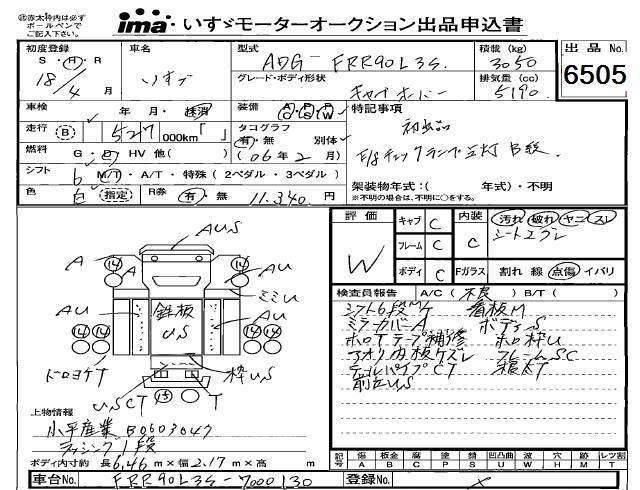 ㊟赤太枠内は必ず
ボールペンで
ご記入下さい。
ima いすゞモーターオークション出品申込書
初度登録 車名 型式 積載 (kg) 出品 No.
S・H・R いすゞ ADG-FRR90L3S. 3050
18/4月 グレード・ボディ形状 排気量 (cc) 6505
キャブオーバー 5190
車検 年 月・抹消 装備 A・P・P C S W 特記事項
走行 (B) 527 000km「 」 タコグラフ 初出品
有・無 別体 F/Sチェックランプ点灯 B級.
燃料 G・D・HV 他( ) (06年2月)
シフト 6 M/T・A/T・特殊 ( 2ペダル・3ペダル ) 架装物年式:( 年式)・不明
色 白 指定 R券 有・無 11.340. ※不明の場合は、不明に○をする。
評価 キャブ C 内装 汚れ 破れ ヤニ スレ
W フレーム C C シートエグレ
ボディ C Fガラス 割れ 線 点傷 イバリ
検査員報告 A/C ( 不良 ) B/T ( )
シフト6段M/T 看板M
ミラーカバーA ボデーS
ホロTテープ補修 ホロ枠U
アオリ内板ケズレ フレームSC
テールパイプCT 根太T
前立US
AUS
14 A A 14
AU ミミU
AU AU
鉄板
US
14 14 14 14
ドロヨケT 枠US
USCT 15 T
上物情報
小平産業 B0603047
ラッシング1段
ボディ内寸約 長6.46m×幅2.17m×高 m
記号 傷 板金 腐 塗 錆 凹凸曲 波 穴 跡 レツ割
A B C P S U W H M T
車台No. FRR90L3S-7000130 登録No. ×